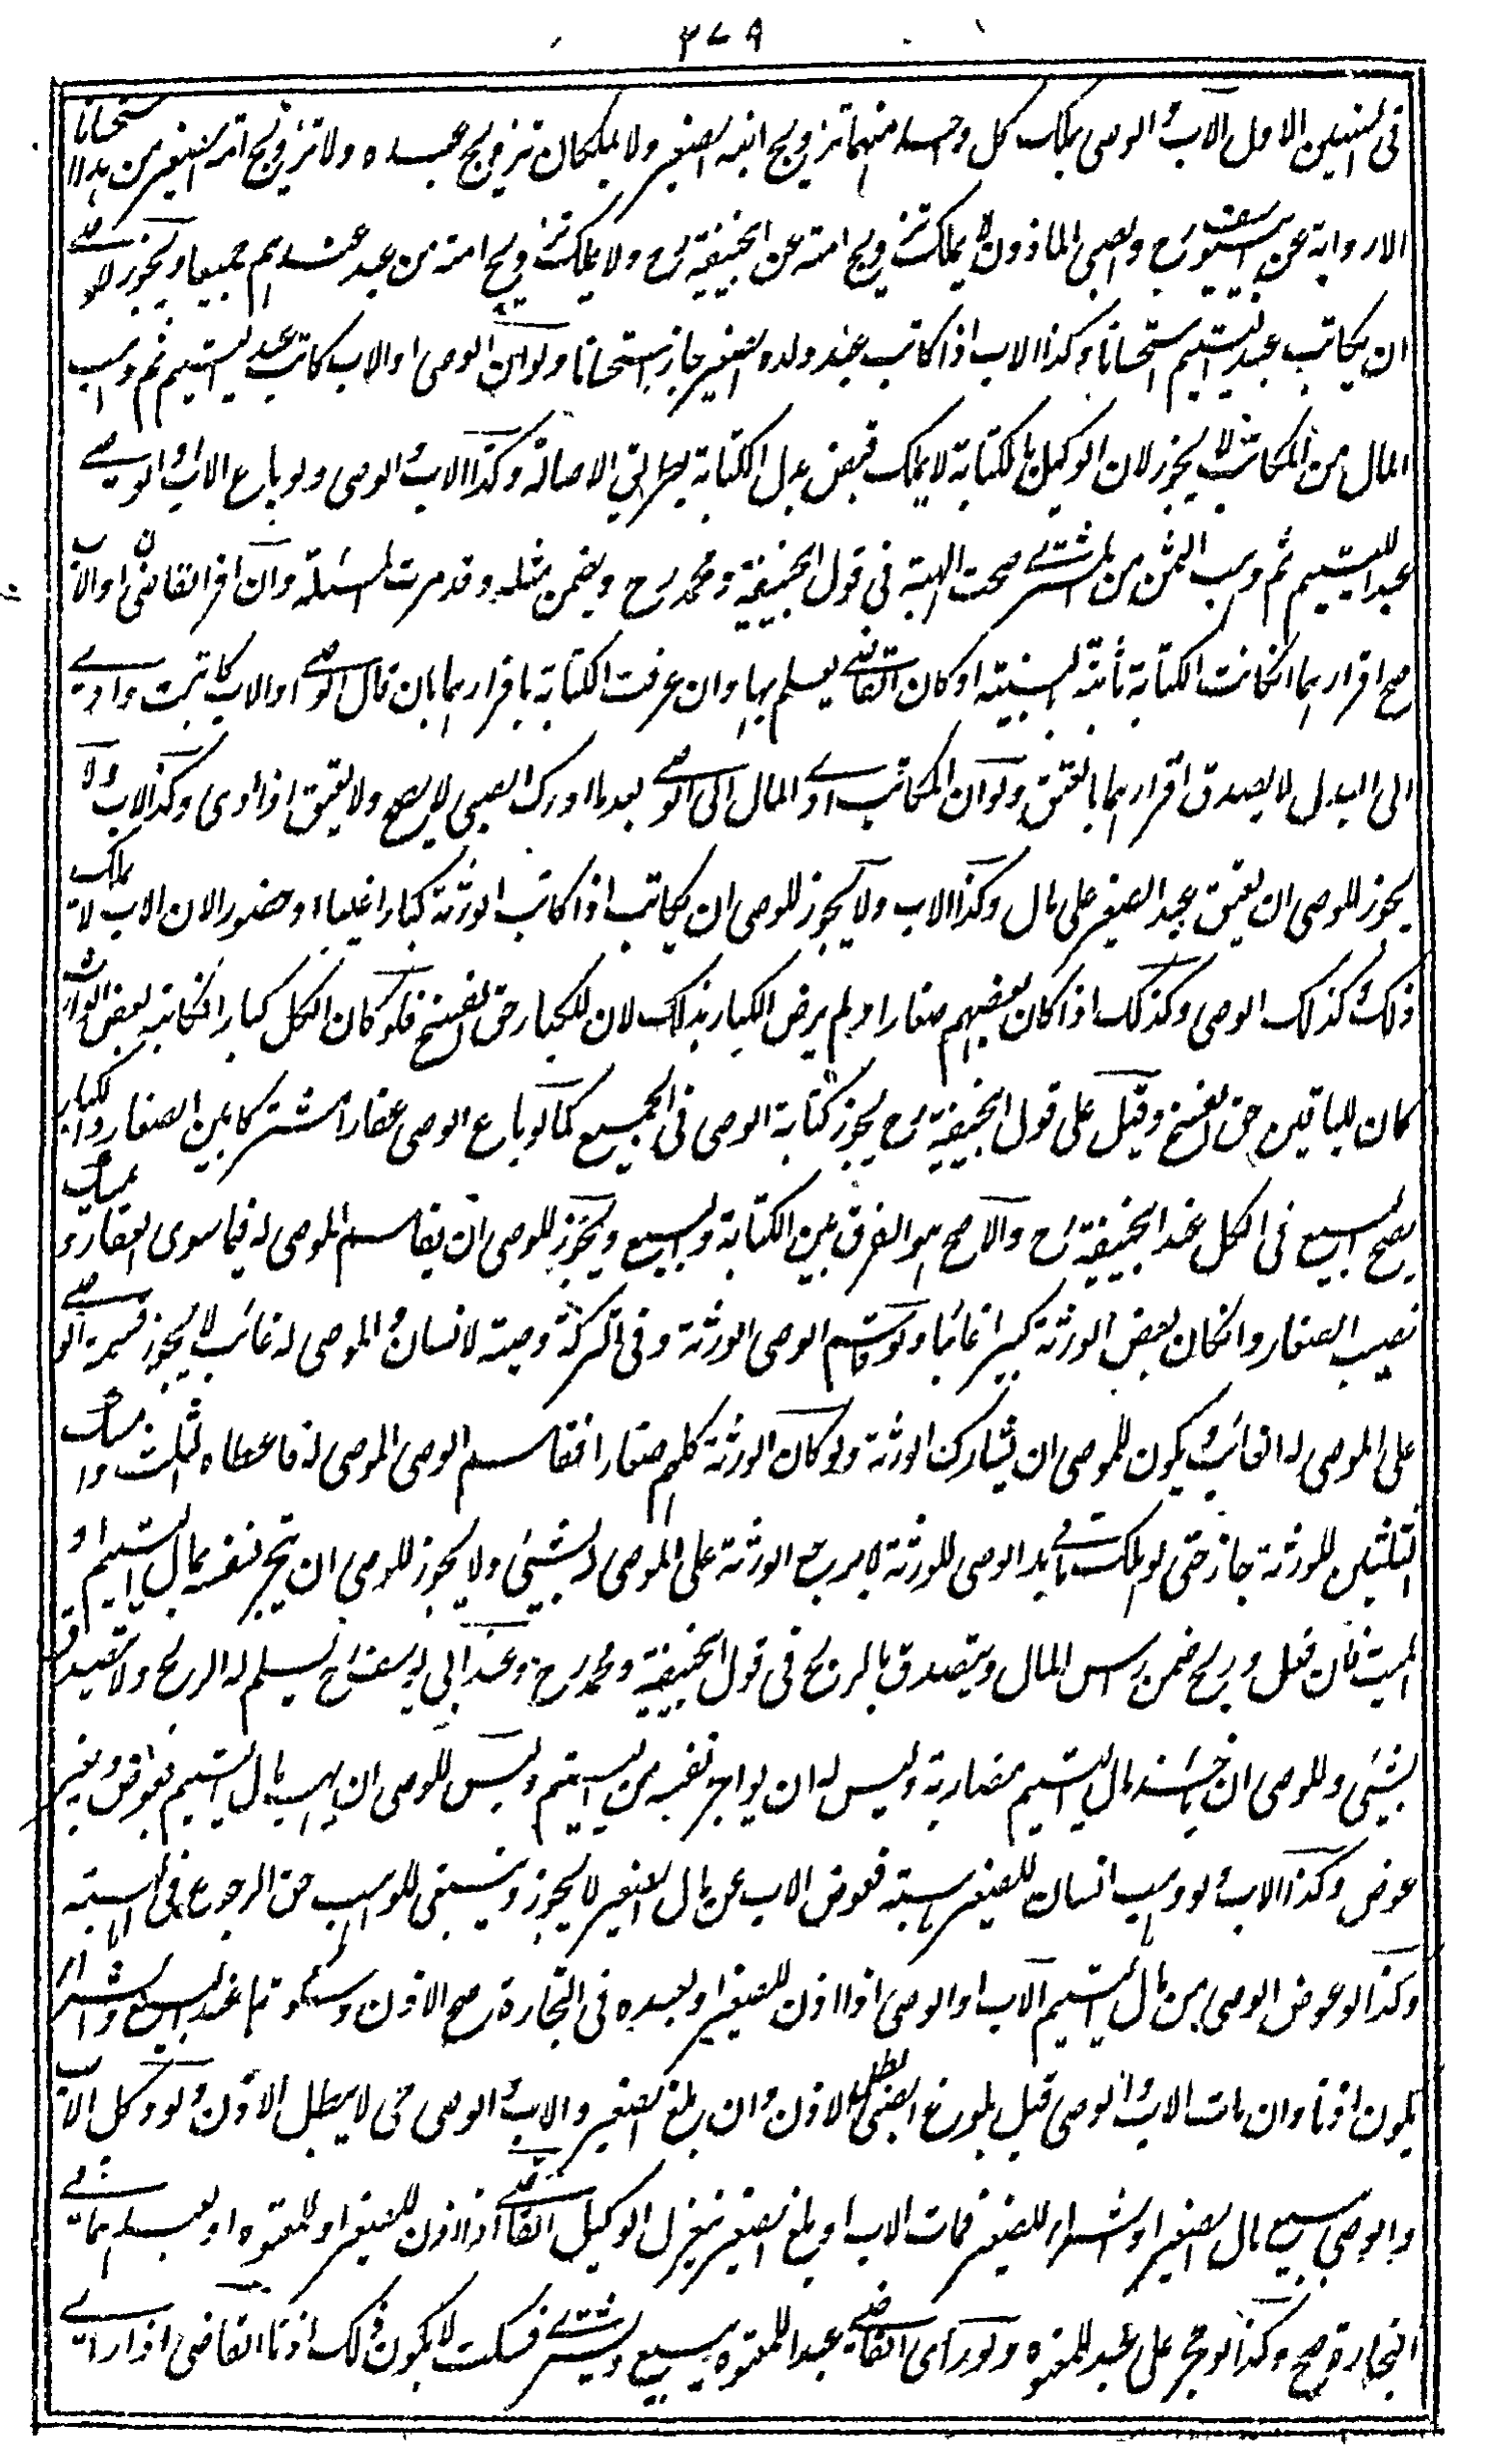 ٣٧٩
فى السبيلين الاول الاب والوصى يملك كل واحد منهما تزويج امة الصغير ولا يملكان تزويج عبده ولا تزويج امة الصغير من عبده استحسانا
الا رواية عن ابي يوسف رح والصبى الماذون لا يملك تزويج امته عن ابيحنيفة رح ولا يملك تزويج امته من عبده عندهم جميعا ويجوز للوصى
ان يكاتب عبد اليتيم استحسانا وكذا الاب اذا كاتب عبد ولده الصغير جاز استحسانا ولو ان الوصى او الاب كاتب عبد اليتيم ثم وهب
المال من المكاتب لا يجوز لان الوكيل بالكتابة لا يملك قبض بدل الكتابة بطريق الاصالة وكذا الاب والوصى ولو باع الاب او الوصى
عبد اليتيم ثم وهب الثمن من المشترى صحت الهبة فى قول ابيحنيفة ومحمد رح ويضمن مثله وقد مرت المسئلة وان اقر القاضى او الاب
صح اقرارهما انكانت الكتابة ثابتة بالبينة او كان القاضى يعلم بها وان عرفت الكتابة باقرارهما بان قال الوصى او الاب كاتبت وادى
الى البدل لا يصدق اقرارهما بالعتق ولو ان المكاتب ادى المال الى الوصى بعد ما ادرك الصبى لا يصح ولا يعتق اذا ادى وكذا الاب ولا
يجوز للوصى ان يعتق عبد الصغير على مال وكذا الاب ولا يجوز للوصى ان يكاتب اذا كانت الورثة كبارا غيبا او حضورا لان الاب لا يملك
ذلك وكذلك الوصى وكذلك اذا كان بعضهم صغارا ولم يرض الكبار بذلك لان للكبار حق الفسخ فلو كان الكل كبارا فكاتبه بعض الورثة
كان للباقين حق الفسخ وقيل على قول ابيحنيفة رح يجوز كتابة الوصى فى الجميع كما لو باع الوصى عقارا مشتركا بين الصغار والكبار
يصح البيع فى الكل عند ابيحنيفة رح والاصح هو الفرق بين الكتابة والبيع ويجوز للوصى ان يقاسم الموصى له فيما سوى العقار ويمسك
نصيب الصغار وانكان بعض الورثة كبيرا غائبا ولو قاسم الوصى الورثة وفى التركة وصية لانسان والموصى له غائب لا يجوز قسمة الوصى
على الموصى له الغائب ويكون للموصى ان يشارك الورثة ولو كان الورثة كلهم صغارا فقاسم الوصى الموصى له فاعطاه الثلث وامسك
الثلثين للورثة جاز حتى لو هلك ما فى يد الوصى للورثة لا يرجع الورثة على الموصى له بشيئ ولا يجوز للوصى ان يتجر لنفسه بمال اليتيم او
الميت فان فعل وربح ضمن راس المال ويتصدق بالربح فى قول ابيحنيفة ومحمد رح وعند ابي يوسف رح يسلم له الربح ولا يتصدق
بشيئ وللوصى ان ياخذ مال اليتيم مضاربة وليس له ان يواجر نفسه من اليتيم وليس للوصى ان يهب مال اليتيم بعوض وبغير
عوض وكذا الاب ولو وهب انسان للصغير هبة فعوض الاب عن مال الصغير لا يجوز وينبغى للواهب حق الرجوع فى الهبة
وكذا لو عوض الوصى من مال اليتيم الاب او الوصى اذا اذن للصغير او لعبده فى التجارة صح الاذن وسكوتهما عند البيع والشراء
يكون اذنا وان مات الاب او الوصى قبل بلوغ الصبى بطل الاذن وان بلغ الصغير والاب والوصى حى لا يبطل الاذن ولو وكل الاب
والوصى ببيع مال الصغير او شراء للصغير فمات الاب او بلغ الصغير ينعزل الوكيل القاضى اذا اذن للصغير او للمعتوه او لعبدهما فى
التجارة صح وكذا لو حجر على عبد المعتوه ولو رأى القاضى عبدا للمعتوه يبيع ويشترى فسكت لا يكون ذلك اذنا القاضى اذا راى